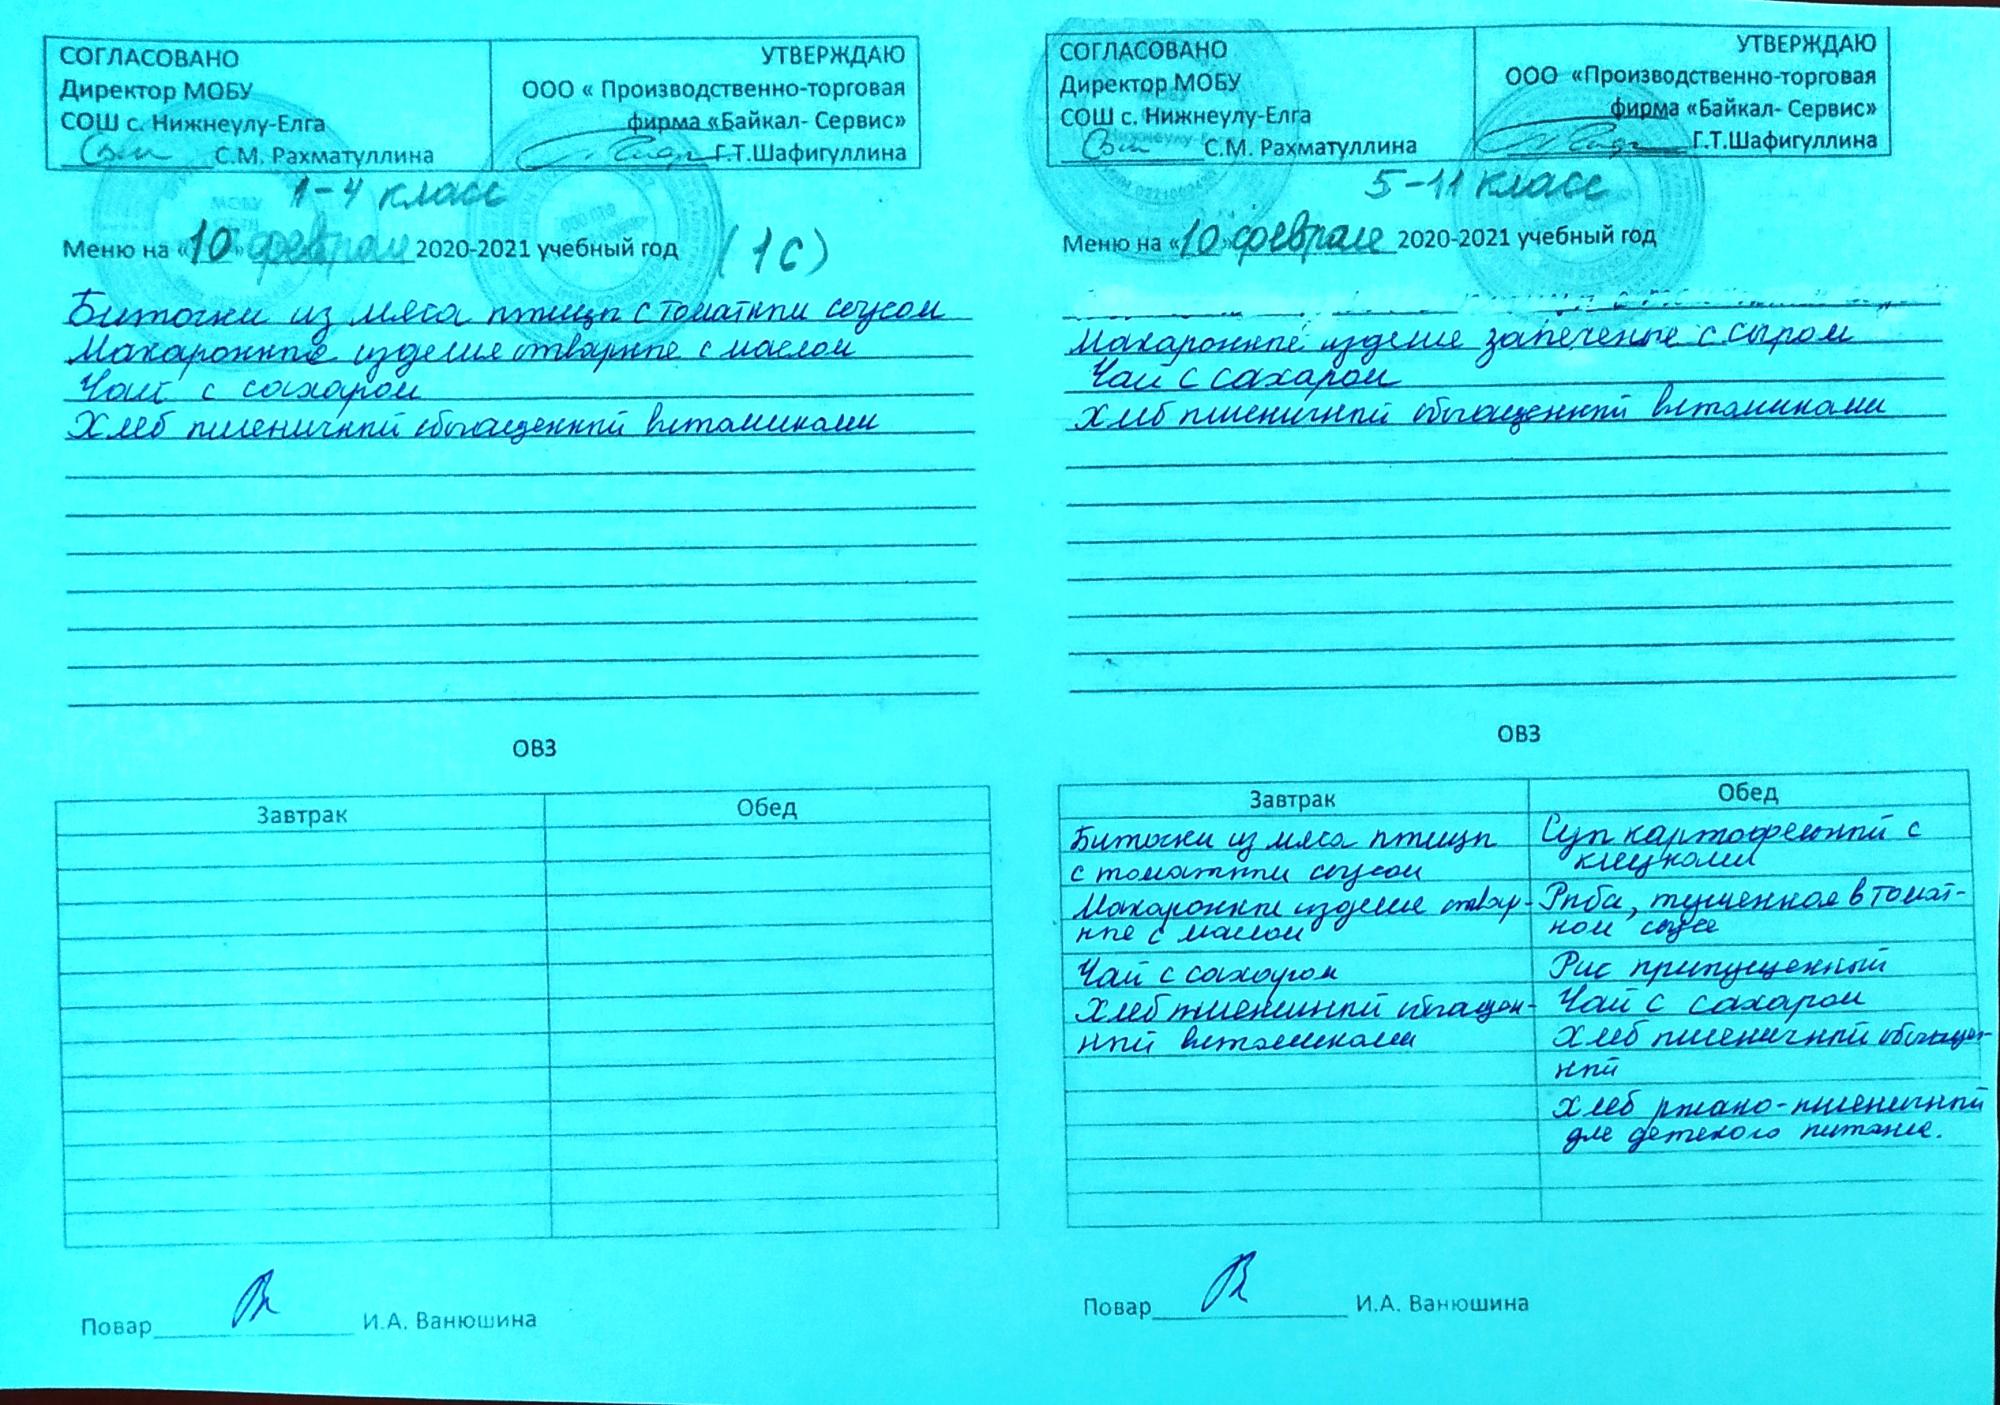 СОГЛАСОВАНО
Директор МОБУ
СОШ с. Нижнеулу-Елга
С.М. Рахматуллина
УТВЕРЖДАЮ
ООО « Производственно-торговая
фирма «Байкал- Сервис»
Г.Т.Шафигуллина
1-4 класс
Меню на «10» февраля 2020-2021 учебный год (1с)
Биточки из мяса птицы с томатным соусом
Макаронные изделия отварные с маслом
Чай с сахаром
Хлеб пшеничный обогащенный витаминами
ОВЗ
Завтрак Обед
Повар И.А. Ванюшина
СОГЛАСОВАНО
Директор МОБУ
СОШ с. Нижнеулу-Елга
С.М. Рахматуллина
УТВЕРЖДАЮ
ООО «Производственно-торговая
фирма «Байкал- Сервис»
Г.Т.Шафигуллина
5-11 класс
Меню на «10» февраля 2020-2021 учебный год
Макаронные изделия запеченые с сыром
Чай с сахаром
Хлеб пшеничный обогащенный витаминами
ОВЗ
Завтрак
Биточки из мяса птицы
с томатным соусом
Макаронные изделия отвар-
ные с маслом
Чай с сахаром
Хлеб пшеничный обогащен-
ный витаминами
Обед
Суп картофельный с
клецками
Рыба, тушенная в томат-
ном соусе
Рис припущенный
Чай с сахаром
Хлеб пшеничный обогащен-
ный
Хлеб ржано-пшеничный
для детского питания.
Повар И.А. Ванюшина